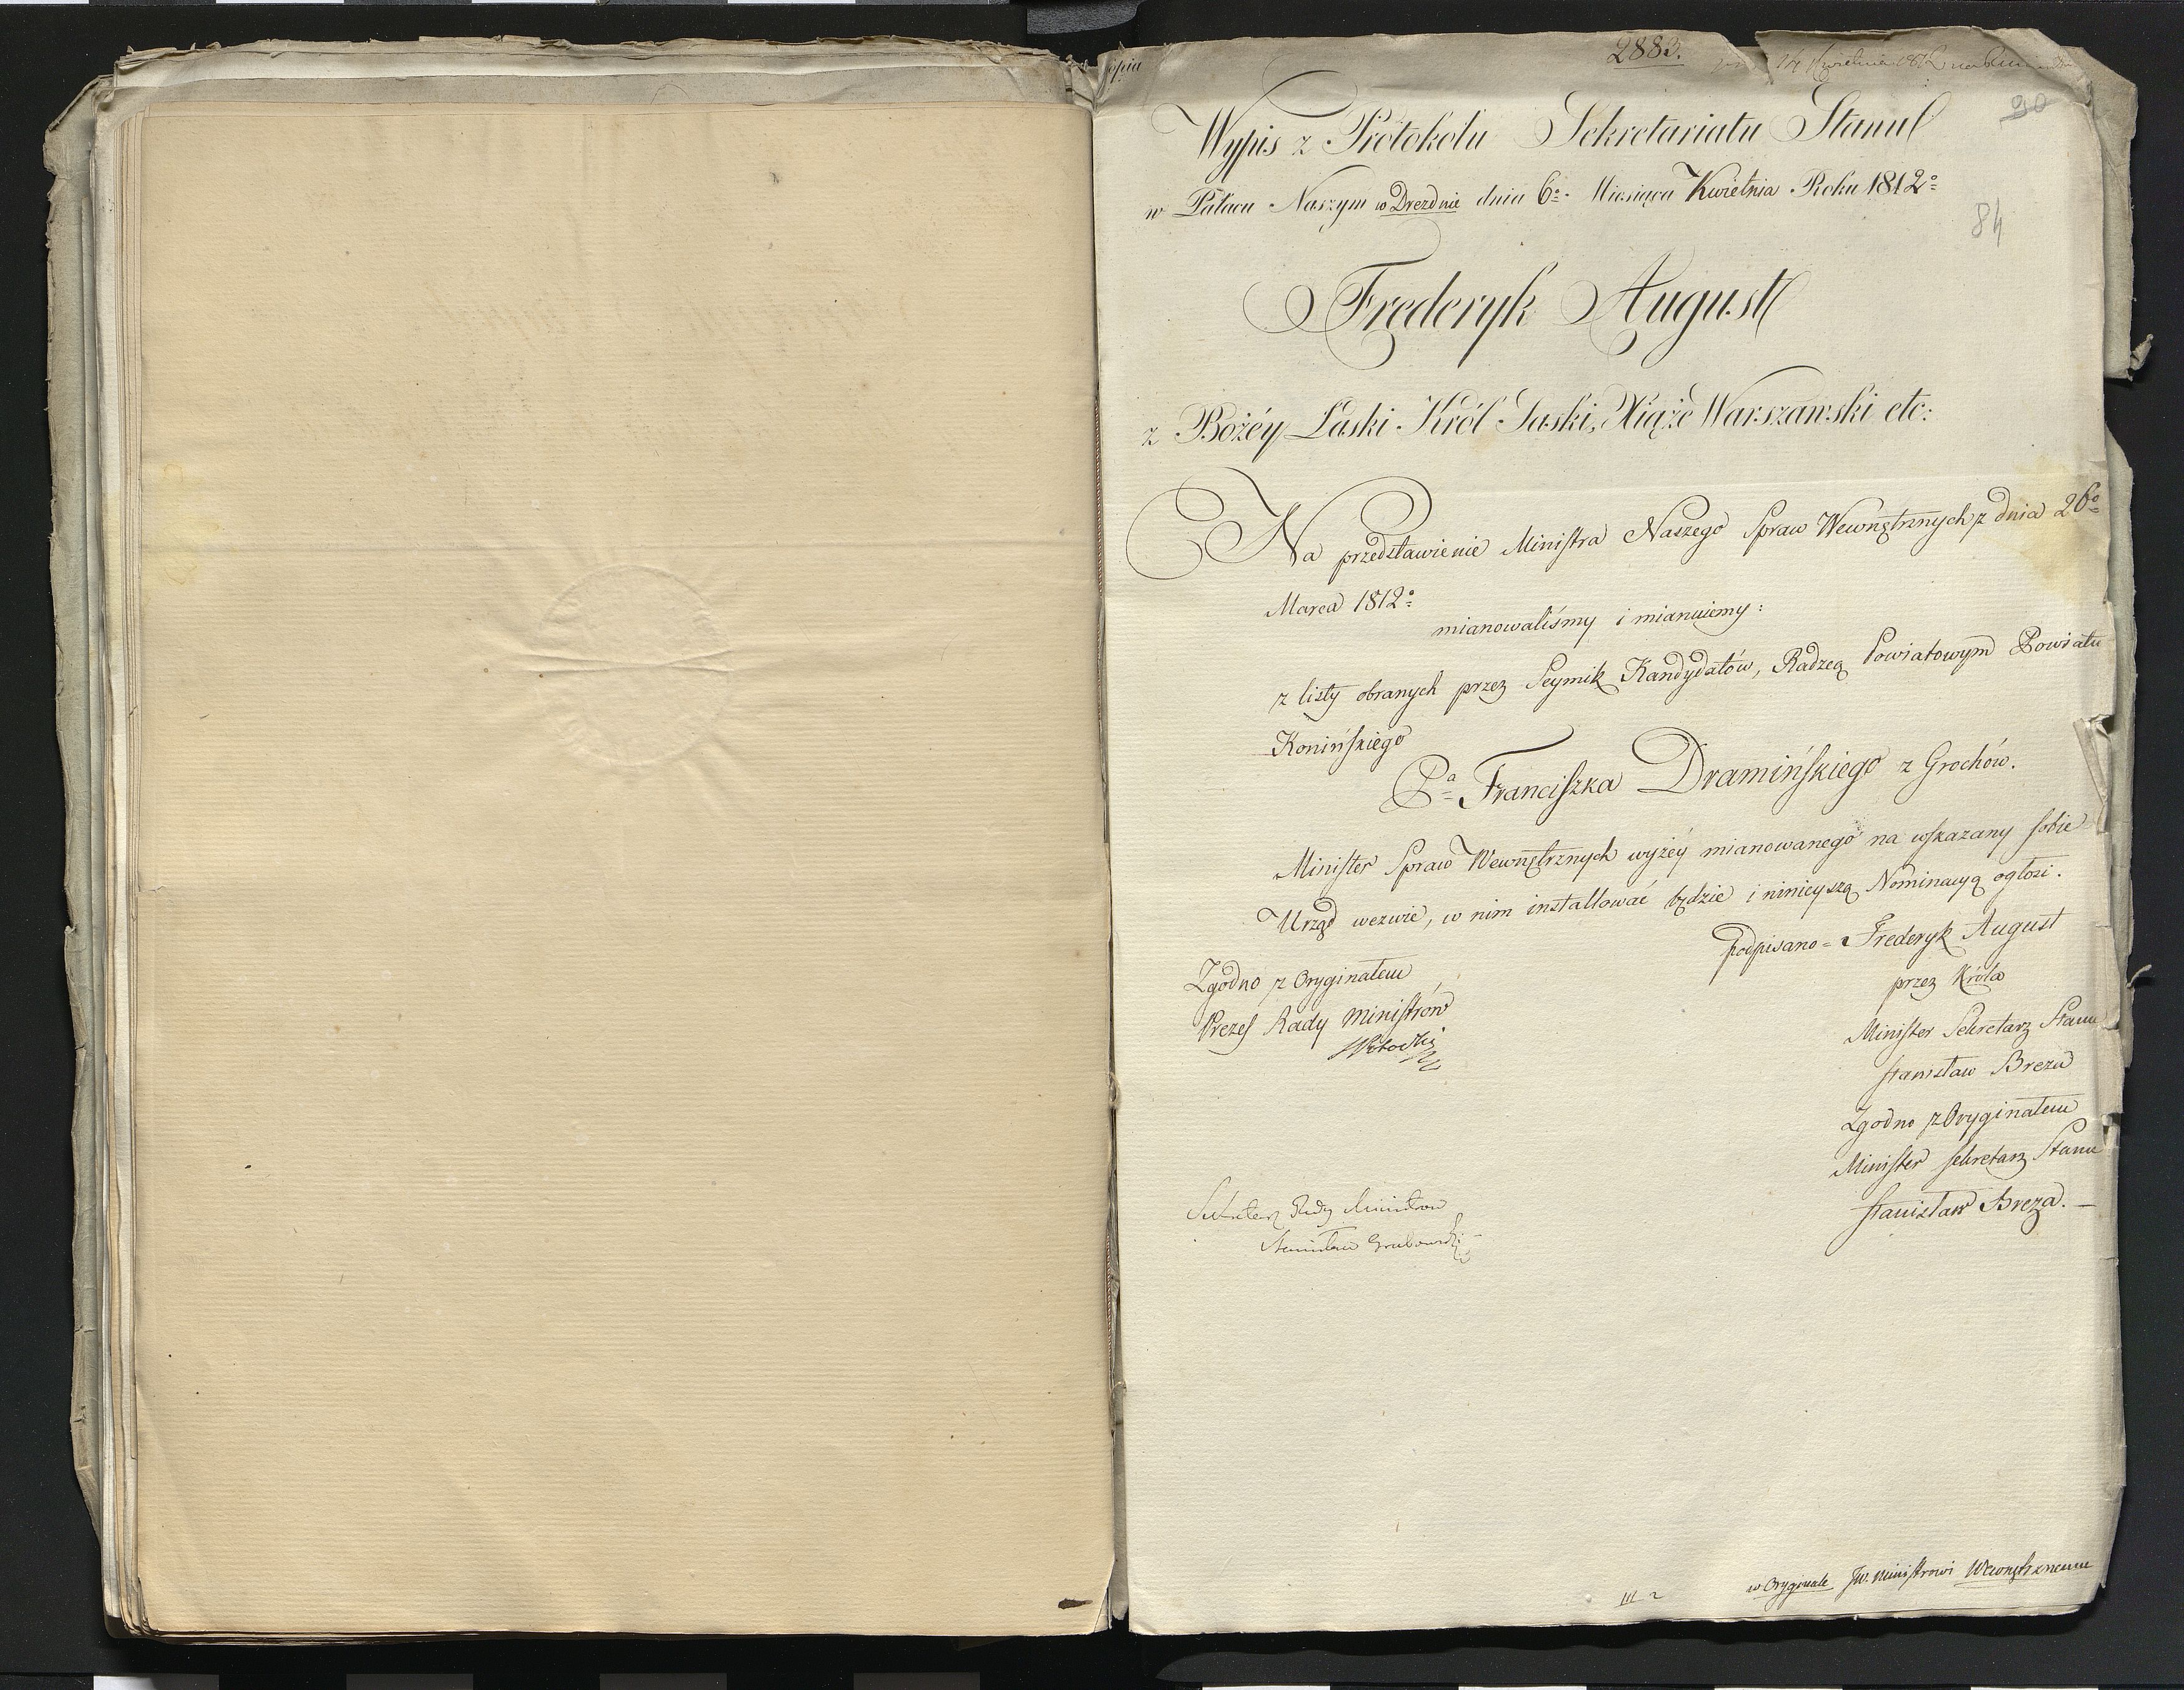 2883.
14 Kwietnia 1812
90
Wypis z Protokołu Sekretariatu Stanu
w Pałacu Naszym w Dreznie dnia 6º Miesiąca Kwietnia Roku 1812º
84
Frederyk August
z Bożéy Łaski Król Saski, Xiąże Warszawski etc:
Na przedstawienie Ministra Naszego Spraw Wewnętrznych z dnia 26º
Marca 1812º
mianowaliśmy i mianuiemy:
z listy obranych przez Seymik Kandydatów, Radzcą Powiatowym Powiatu
Konińskiego
Pª Franciszka Dramińskiego z Grochów.
Minister Spraw Wewnętrznych wyżéy mianowanego na wskazany sobie
Urząd wezwie, w nim installować będzie i ninieyszą Nominacyą ogłosi.
podpisano = Frederyk August
przez Króla
Minister Sekretarz Stanu
Stanisław Breza
Zgodno z Oryginałem
Minister Sekretarz Stanu
Stanisław Breza. —
Zgodno z Oryginałem
Prezes Rady Ministrów
Sekretarz Rady Ministrow
Stanisław Grabowski
III 2
w Oryginale JW. Ministrowi Wewnętrznemu